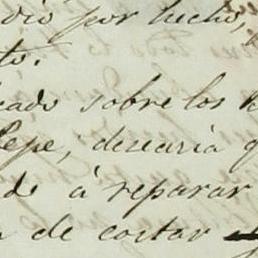 dió por hecho,
to.
cado sobre los
Pepe, desearia
de á reparar
de cortar